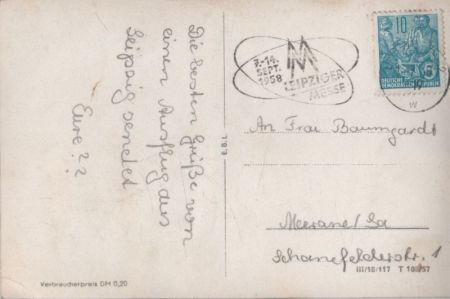 Die besten Grüße von
einem Ausflug aus
Leipzig sendet
Eure ? ?
Verbraucherpreis DM 0,20
7.-14.
SEPT.
1958
LEIPZIGER
MESSE
10
DEUTSCHE
DEMOKRATISCHE REPUBLIK
5
W
An Frau Baumgardt
Meerane/Sa
Schönefelderstr. 1
III/18/117 T 10/57